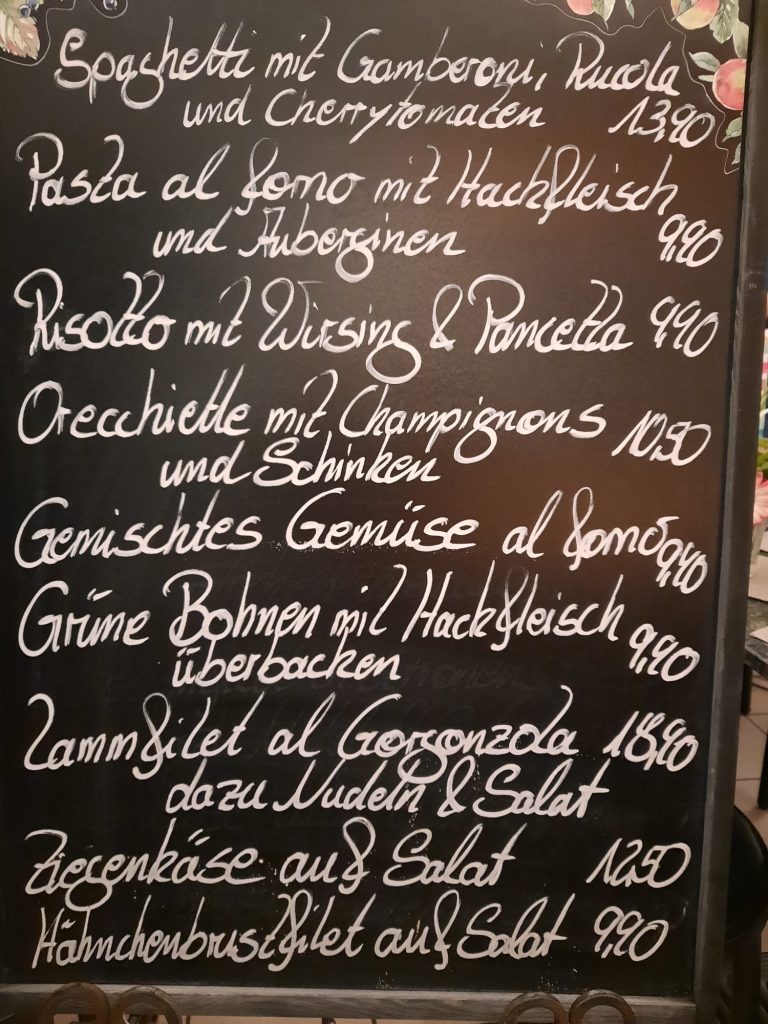 Spaghetti mit Gamberoni, Rucola
und Cherrytomaten 13,90
Pasta al forno mit Hackfleisch
und Auberginen 9,90
Risotto mit Wirsing & Pancetta 9,90
Orecchiette mit Champignons
und Schinken 10,50
Gemischtes Gemüse al forno 9,40
Grüne Bohnen mit Hackfleisch
überbacken 9,90
Lammfilet al Gorgonzola 18,90
dazu Nudeln & Salat
Ziegenkäse auf Salat 12,50
Hähnchenbrustfilet auf Salat 9,90